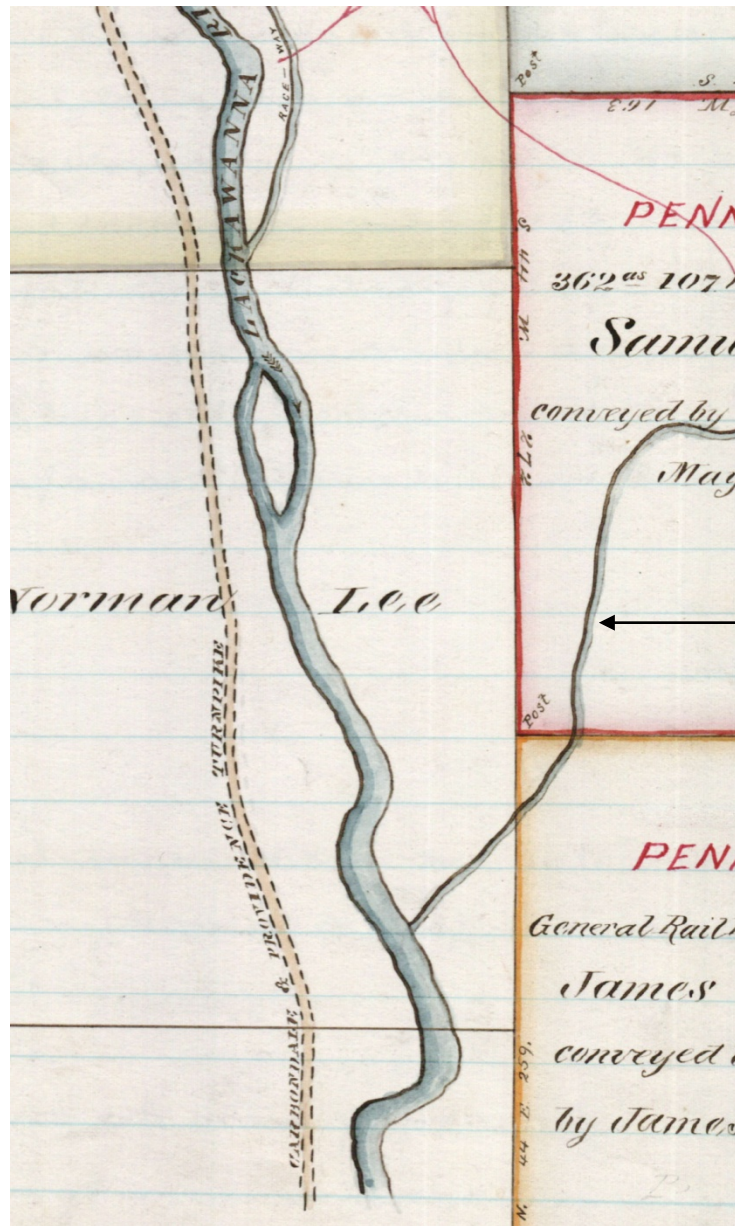 LACKAWANNA RI
RACE-WAY
Post
S.
163
PENN
362as 107
Samu
conveyed by
May
S 44 W 272
Norman Lee
Post
CARBONDALE & PROVIDENCE TURNPIKE
PENN
General Rail
James
conveyed
by James
N. 44 E 259.